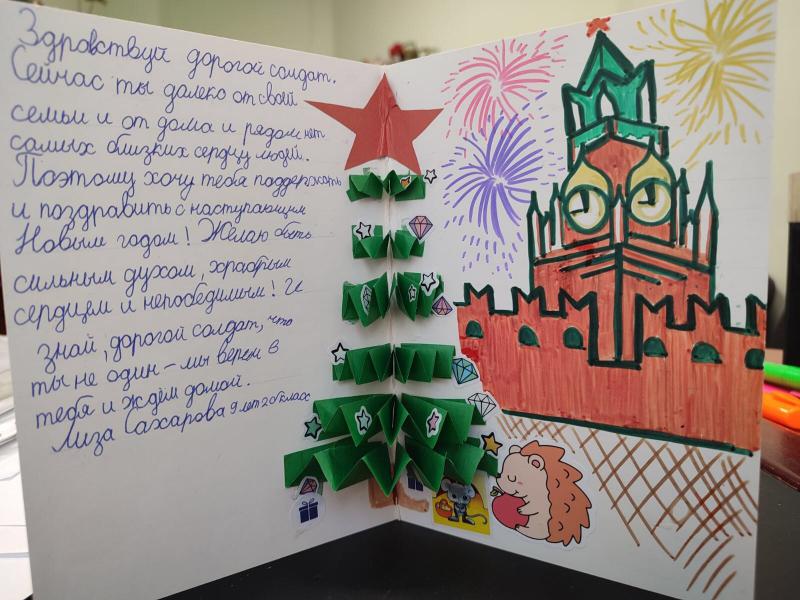 Здравствуй дорогой солдат.
Сейчас ты далеко от своей
семьи и от дома и рядом нет
самых близких сердцу людей.
Поэтому хочу тебя поддержать
и поздравить с наступающим
Новым годом! Желаю быть
сильным духом, храбрым
сердцем и непобедимым! И
знай, дорогой солдат, что
ты не один - мы верем в
тебя и ждём домой.
Лиза Сахарова 9 лет 2б класс